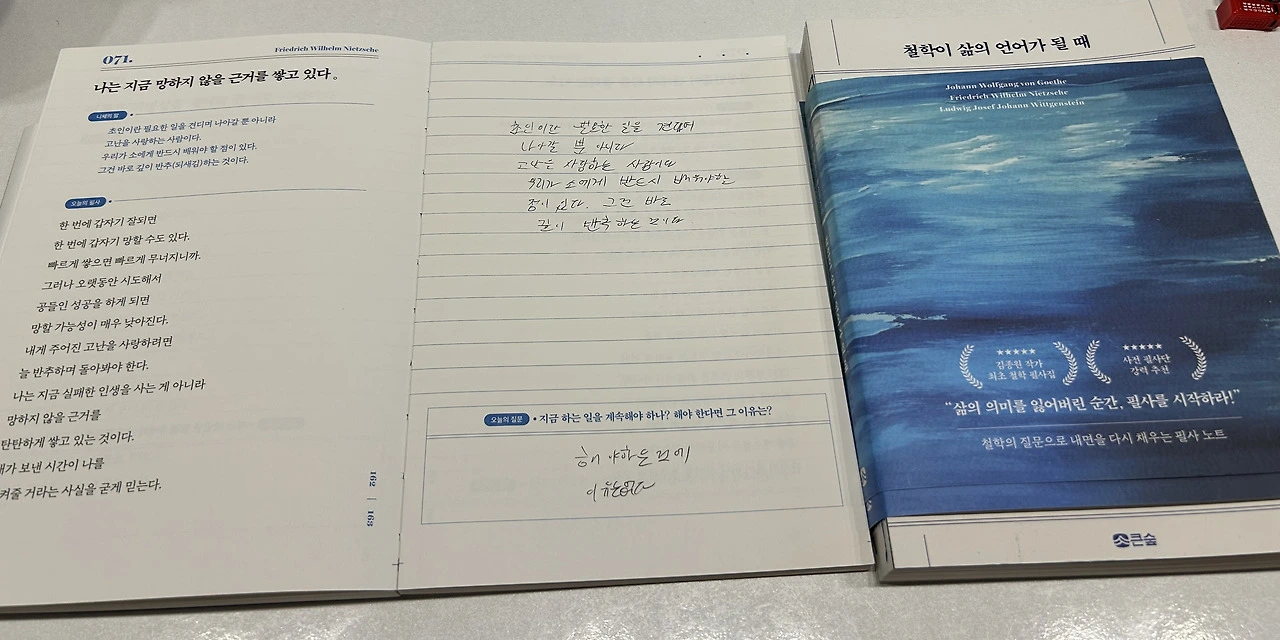 071.
Friedrich Wilhelm Nietzsche
나는 지금 망하지 않을 근거를 쌓고 있다.
니체의 말
초인이란 필요한 일을 견디며 나아갈 뿐 아니라
고난을 사랑하는 사람이다.
우리가 소에게 반드시 배워야 할 점이 있다.
그건 바로 깊이 반추(되새김)하는 것이다.
오늘의 필사
한 번에 갑자기 잘되면
한 번에 갑자기 망할 수도 있다.
빠르게 쌓으면 빠르게 무너지니까.
그러나 오랫동안 시도해서
공들인 성공을 하게 되면
망할 가능성이 매우 낮아진다.
내게 주어진 고난을 사랑하려면
늘 반추하며 돌아봐야 한다.
나는 지금 실패한 인생을 사는 게 아니라
망하지 않을 근거를
탄탄하게 쌓고 있는 것이다.
내가 보낸 시간이 나를
켜줄 거라는 사실을 굳게 믿는다.
162 | 163
초인이란 필요한 일을 견디며
나아갈 뿐 아니라
고난을 사랑하는 사람이다
우리가 소에게 반드시 배워야 할
점이 있다. 그건 바로
깊이 반추하는 것이다
오늘의 질문 • 지금 하는 일을 계속해야 하나? 해야 한다면 그 이유는?
해야하는 것에
이유는 없다
철학이 삶의 언어가 될 때
Johann Wolfgang von Goethe
Friedrich Wilhelm Nietzsche
Ludwig Josef Johann Wittgenstein
김종원 작가
최초 철학 필사집
사전 필사단
강력 추천
“삶의 의미를 잃어버린 순간, 필사를 시작하라!”
철학의 질문으로 내면을 다시 채우는 필사 노트
큰숲